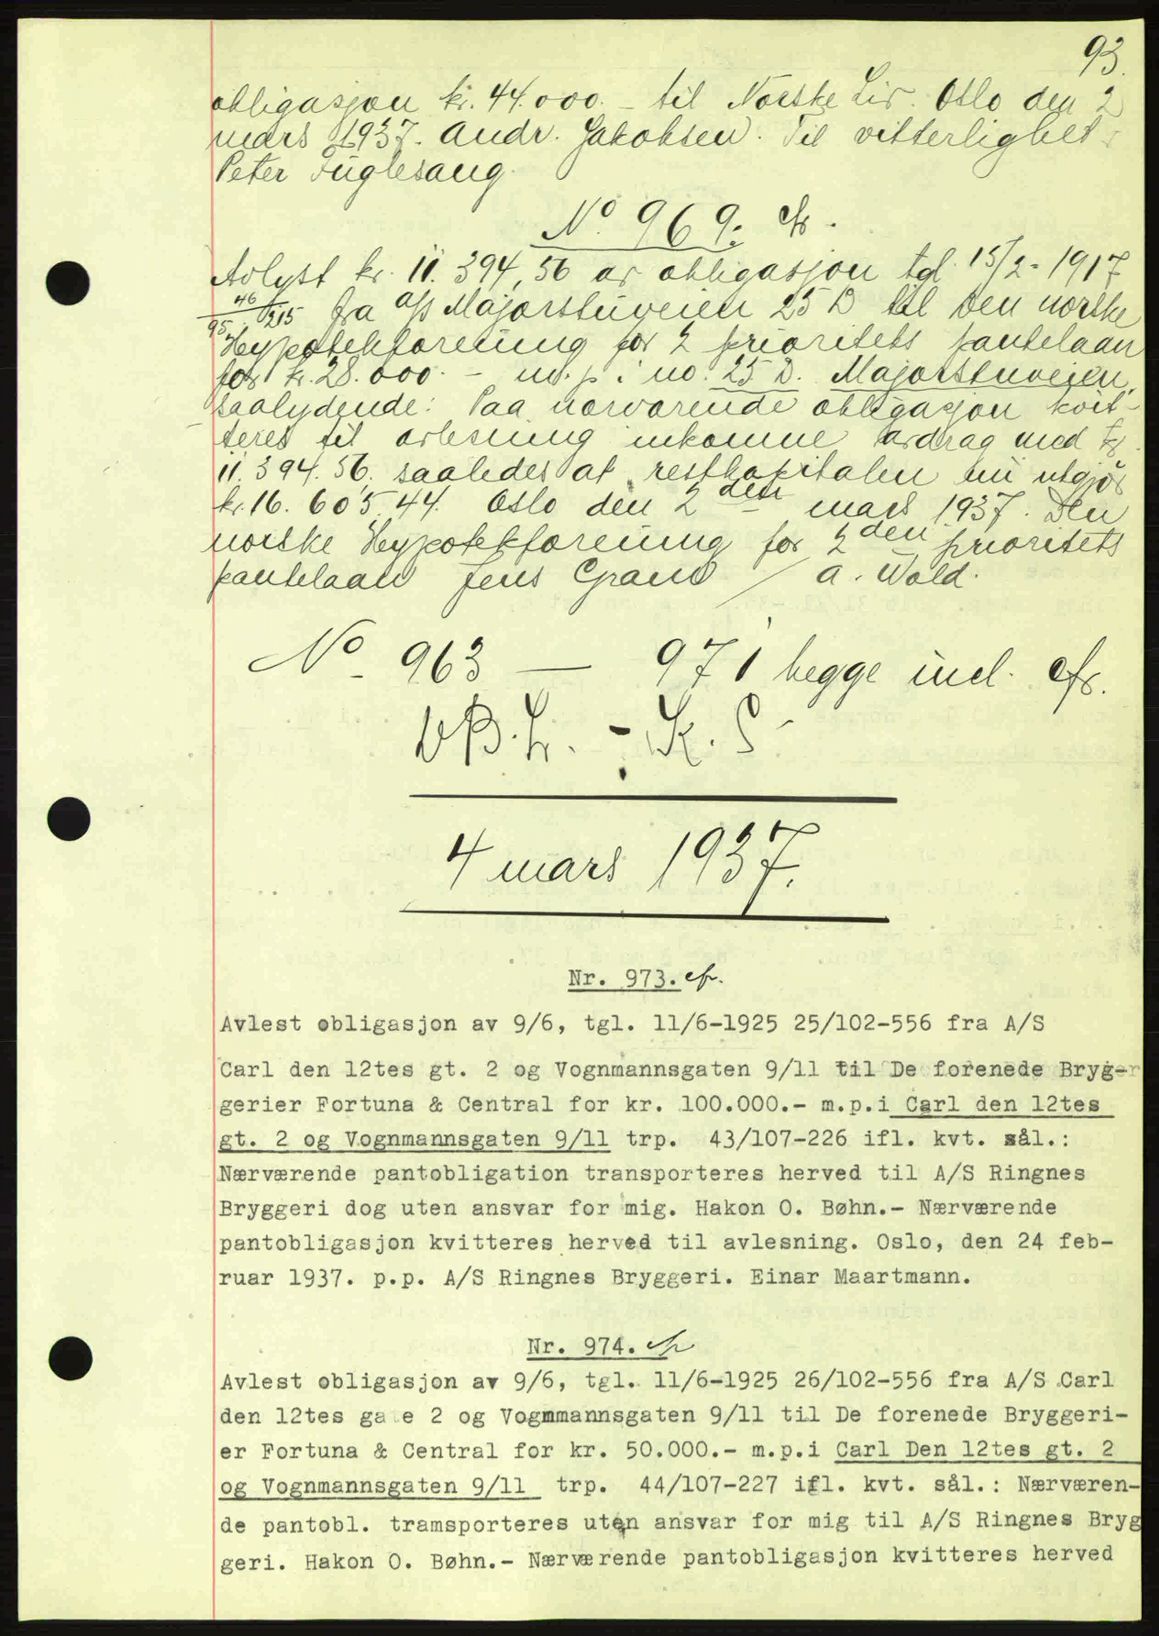 93.
obligasjon kr. 44.000.- til Norske Liv. Oslo den 2
mars 1937. Andr. Jakobsen. Til vitterlighet:
Peter Fuglesang.
No 969. cfr.
Avlyst kr. 11.394,56 av obligasjon tgl. 15/2-1917
46/95 215 fra A/S Majorstuveien 25 D til Den norske
Hypotekforening for 2 prioritets pantelaan
for kr. 28.000.- m.p.i no. 25 D. Majorstuveien,
saalydende: Paa nærværende obligasjon kvit-
teres til avlesning inkomne avdrag med kr.
11.394.56. saaledes at restkapitalen nu utgjör
kr. 16.605.44. Oslo den 2den mars 1937. Den
norske Hypotekforening for 2den prioritets
pantelaan Jens Gram / A. Wold.
No 963 — 971 begge incl. cfr.
4 mars 1937.
Nr. 973. cfr.
Avlest obligasjon av 9/6, tgl. 11/6-1925 25/102-556 fra A/S
Carl den 12tes gt. 2 og Vognmannsgaten 9/11 til De forenede Bryg-
gerier Fortuna & Central for kr. 100.000.- m.p.i Carl den 12tes
gt. 2 og Vognmannsgaten 9/11 trp. 43/107-226 ifl. kvt. sål.:
Nærværende pantobligation transporteres herved til A/S Ringnes
Bryggeri dog uten ansvar for mig. Hakon O. Bøhn.- Nærværende
pantobligasjon kvitteres herved til avlesning. Oslo, den 24 feb-
ruar 1937. p.p. A/S Ringnes Bryggeri. Einar Maartmann.
Nr. 974. cfr
Avlest obligasjon av 9/6, tgl. 11/6-1925 26/102-556 fra A/S Carl
den 12tes ga e 2 og Vogmmannsgaten 9/11 til De forenede Bryggeri-
er Fortuna & Central for kr. 50.000.- m.p.i Carl Den 12tes gt. 2
og Vognmannsgaten 9/11 trp. 44/107-227 ifl. kvt. sål.: Nærværen-
de pantobl. tramsporteres uten ansvar for mig til A/S Ringnes Bryg
geri. Hakon O. Bøhn.- Nærværende pantobligasjon kvitteres herved